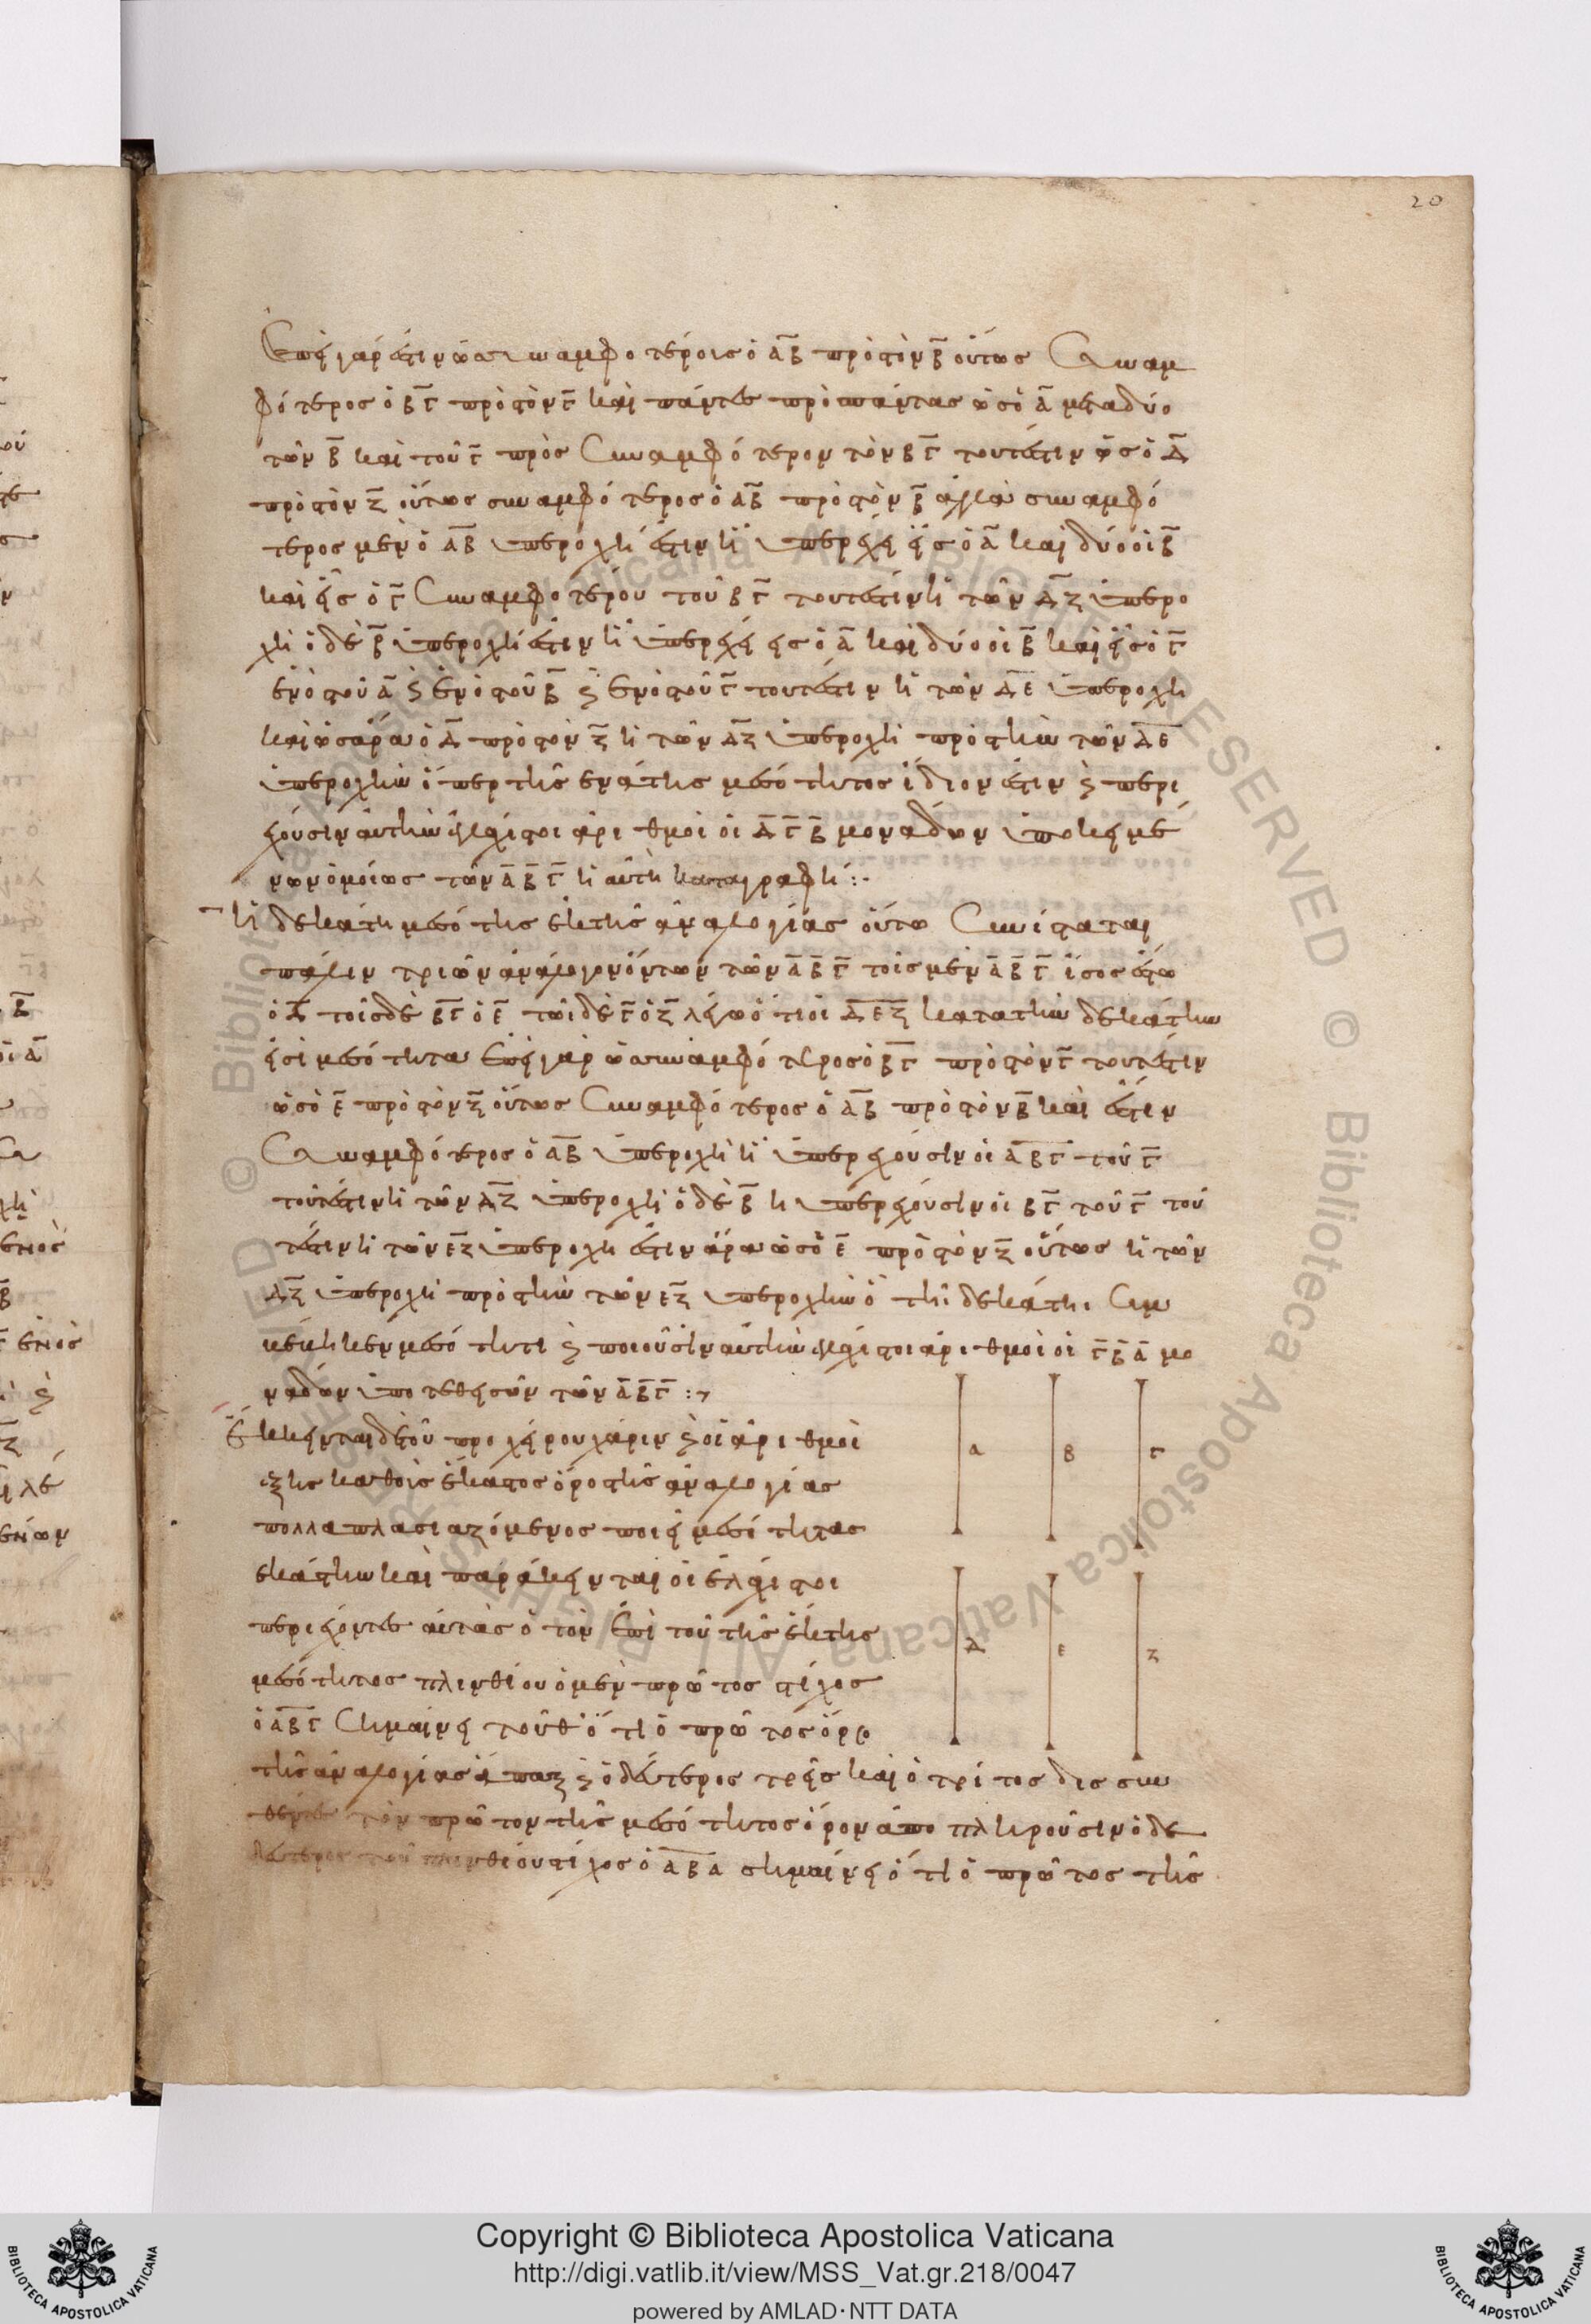 20
Ἐπεὶ γάρ ἐστιν ὡς συναμφοτέροις ὁ Α̅Β̅ πρὸς τὸν Β̅ οὕτως συναμ
φότερος ὁ Β̅Γ̅ πρὸς τὸν Γ̅ καὶ πάντες πρὸς πάντας ὡς ὁ Α̅ μετὰ δύο
τῶν Β̅ καὶ τοῦ Γ̅ πρὸς συναμφότερον τὸν Β̅Γ̅ τουτέστιν ὡς ὁ Δ̅
πρὸς τὸν Ζ̅ οὕτως συναμφότερος ὁ Α̅Β̅ πρὸς τὸν Β̅ ἀλλὰ συναμφό
τερος μὲν ὁ Α̅Β̅ ὑπεροχή ἐστιν ἡ ὑπερέχει εἷς ὁ Α̅ καὶ δύο οἱ Β̅
καὶ εἷς ὁ Γ̅ συναμφοτέρου τοῦ Β̅Γ̅ τουτέστιν ἡ τῶν Δ̅Ζ̅ ὑπερο
χὴ ὁ δὲ Β̅ ὑπεροχή ἐστιν ἡ ὑπερέχει εἷς ὁ Α̅ καὶ δύο οἱ Β̅ καὶ εἷς ὁ Γ̅
ἑνὸς τοῦ Α̅ ϗ ἑνὸς τοῦ Β̅ ϗ ἑνὸς τοῦ Γ̅ τουτέστιν ἡ τῶν Δ̅Ε̅ ὑπεροχὴ
καὶ ὡς ἄρα ὁ Δ̅ πρὸς τὸν Ζ̅ ἡ τῶν Δ̅Ζ̅ ὑπεροχὴ πρὸς τὴν τῶν Δ̅Ε̅
ὑπεροχὴν ὅπερ τῆς ἐνάτης μεσότητος ἴδιον ἐστιν ϗ περι
έχουσιν αὐτὴν ἐλάχιστοι ἀριθμοὶ οἱ Δ̅Γ̅Β̅ μονάδων ὑποκειμέ
νων ὁμοίως τῶν Α̅Β̅Γ̅ ἡ αὐτὴ καταγραφή :-
Ἡ δεκάτη μεσότης ἐκ τῆς ἀναλογίας οὕτω συνίσταται
πάλιν τριῶν ἀνάλογον ὄντων τῶν Α̅Β̅Γ̅ τοῖς μὲν Α̅Β̅Γ̅ ἴσος ἔστω
ὁ Δ̅ τοῖς δὲ Β̅Γ̅ ὁ Ε̅ τῶι δὲ Γ̅ ὁ Ζ̅ λέγω ὅτι οἱ Δ̅Ε̅Ζ̅ κατὰ τὴν δεκάτην
εἰσὶ μεσότητα ἐπεὶ γὰρ ὡς συναμφότερος ὁ Β̅Γ̅ πρὸς τὸν Γ̅ τουτέστιν
ὡς ὁ Ε̅ πρὸς τὸν Ζ̅ οὕτως συναμφότερος ὁ Α̅Β̅ πρὸς τὸν Β̅ καὶ ἔστιν
συναμφότερος ὁ Α̅Β̅ ὑπεροχὴ ἡ ὑπερέχουσιν οἱ Α̅Β̅Γ̅ τοῦ Γ̅
τουτέστιν ἡ τῶν Δ̅Ζ̅ ὑπεροχὴ ὁ δὲ Β̅ ἡ ὑπερέχουσιν οἱ Β̅Γ̅ τοῦ Γ̅ του
τέστιν ἡ τῶν Ε̅Ζ̅ ὑπεροχὴ ἔστιν ἄρα ὡς ὁ Ε̅ πρὸς τὸν Ζ̅ οὕτως ἡ τῶν
Δ̅Ζ̅ ὑπεροχὴ πρὸς τὴν τῶν Ε̅Ζ̅ ὑπεροχὴν ὃ τῆι δεκάτηι συμ
βέβηκεν μεσότητι ϗ ποιοῦσιν αὐτὴν ἐλάχιστοι ἀριθμοὶ οἱ Γ̅Β̅Α̅ μο
νάδων ὑποτεθεισῶν τῶν Α̅Β̅Γ̅ :
Ἔκκεινται δὲ τοῦ προχείρου χάριν ϗ οἱ ἀριθμοὶ
ἑξῆς καθ' οἷς ἕκαστος ὅρος τῆς ἀναλογίας
πολλαπλασιαζόμενος ποιεῖ μεσότητας
ἑκάστην καὶ παράκεινται οἱ ἐλάχιστοι
περιέχοντες αὐτάς ὅτον ἐπὶ τοῦ τῆς ἕκτης
μεσότητος πλινθίου ὁ μὲν πρῶτος στίχος
ὁ Α̅Β̅Γ̅ σημαίνει τοῦθ' ὅτι ὁ πρῶτος ὅρος
τῆς ἀναλογίας ἅπαξ ϗ ὁ δεύτερος τρεῖς καὶ ὁ τρίτος δὶς συν
τεθέντες τὸν πρῶτον τῆς μεσότητος ὅρον ἀποπληροῦσιν ὁ δὲ
δεύτερος τοῦ πλινθίου στίχος ὁ Α̅Β̅Α̅ σημαίνει ὅτι ὁ πρῶτος τῆς
Α Β Γ
Δ Ε Ζ
© Biblioteca Apostolica Vaticana ALL RIGHTS RESERVED
Copyright © Biblioteca Apostolica Vaticana
http://digi.vatlib.it/view/MSS_Vat.gr.218/0047
powered by AMLAD·NTT DATA
BIBLIOTECA APOSTOLICA VATICANA
BIBLIOTECA APOSTOLICA VATICANA